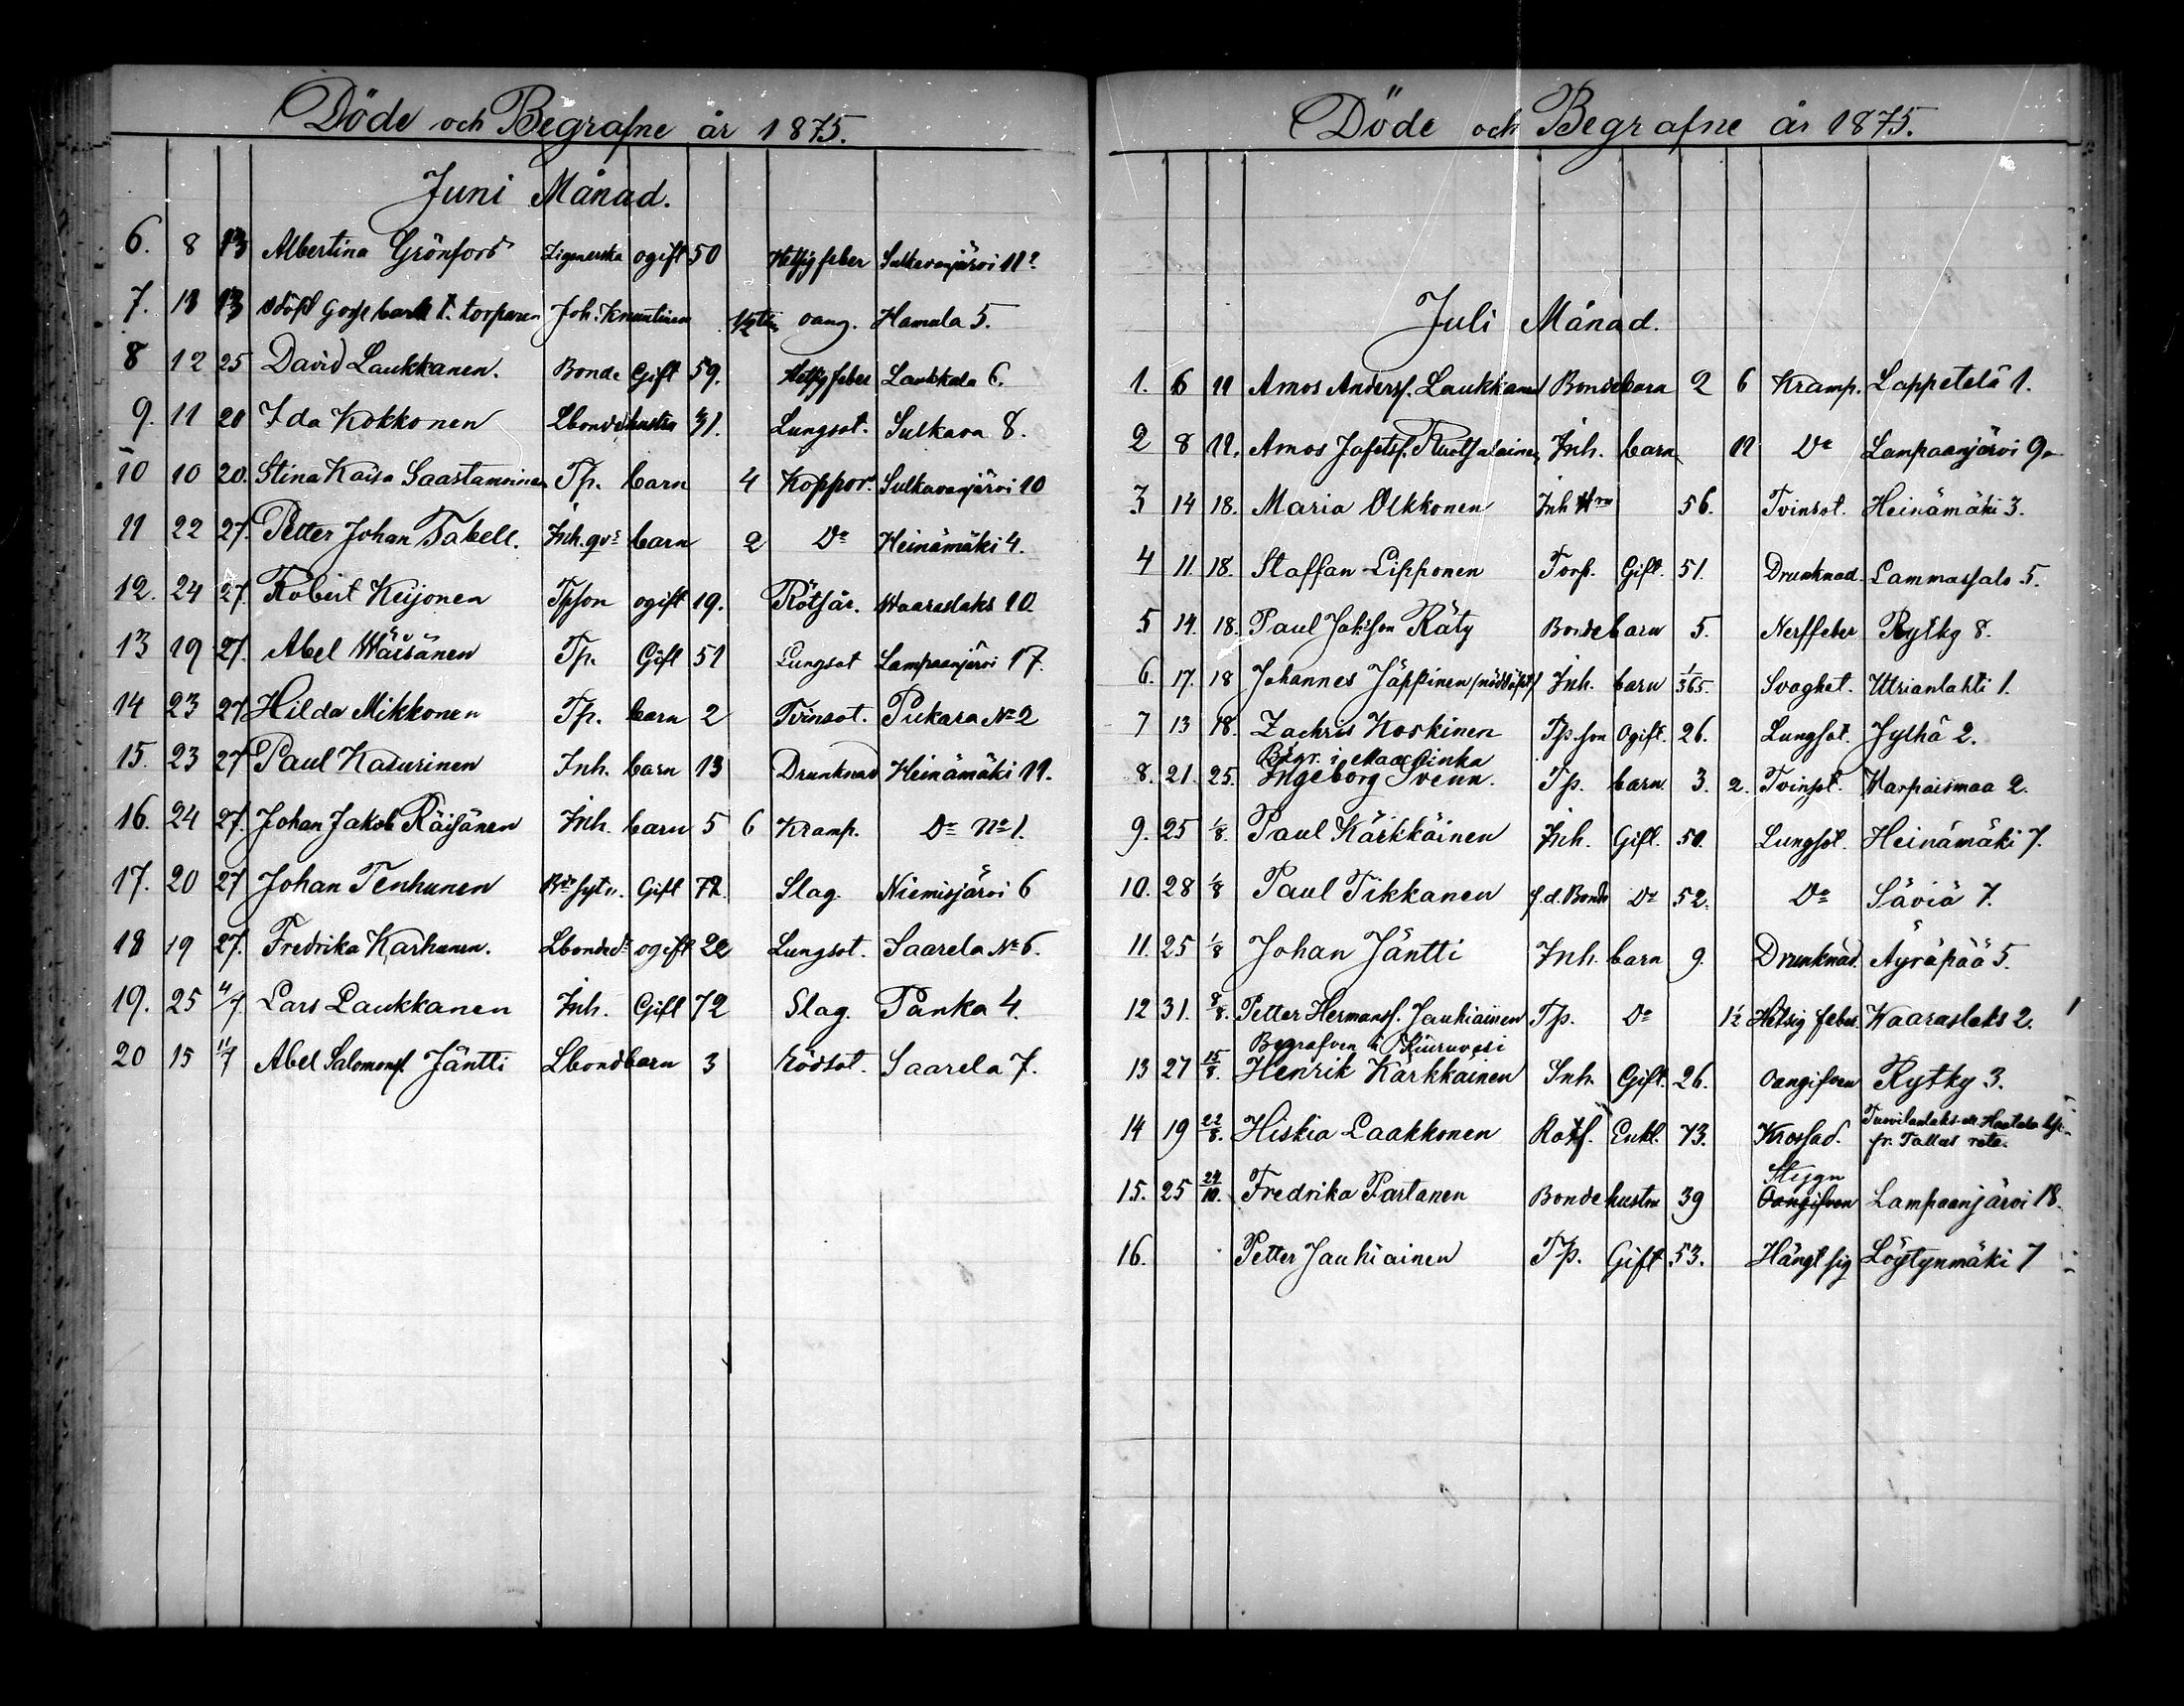 Döde och Begrafne år 1875.
Juni Månad.
6. 8 13 Albertina Grönfors Zigenerska ogift 50 Hetsig feber Sulkavanjärvi 11?
7. 13 13 odöpt gossebarn t. torparen Joh. Knuutinen 1/2 tim oang. Hamula 5.
8 12 25 David Laukkanen. Bonde Gift 59. Hetsig feber Laukkala 6.
9. 11 20 Ida Kokkonen Lbonde hustru 31. Lungsot. Sulkava 8.
10 10 20. Stina Kaisa Saastamoinen Tp. barn 4 Koppor. Sulkavanjärvi 10
11 22 27. Petter Johan Tabell. Inh.qvs barn 2 Do Heinämäki 4.
12. 24 27. Robert Keijonen Tpson ogift 19. Rötfår. Waaraslaks 10
13 19 27. Abel Wäisänen Tp. Gift 51 Lungsot Lampaanjärvi 17.
14 23 27 Hilda Mikkonen Tp. barn 2 Tvinsot. Pukara No 2
15. 23 27 Paul Kasurinen Inh. barn 13 Drunknad Heinämäki 11.
16. 24 27. Johan Jakob Räisänen Inh. barn 5 6 Kramp. Do No 1.
17. 20 27 Johan Tenhunen Bde sytn. Gift 72. Slag. Niemisjärvi 6
18 19 27. Fredrika Karhunen. Lbonded. ogift 22 Lungsot. Saarela No 6.
19. 25 4/7 Lars Laukkanen Inh. Gift 72 Slag. Panka 4.
20 15 11/7 Abel Salomonsf. Jäntti Lbond barn 3 Rödsot. Saarela 7.
Döde och Begrafne år 1875.
Juli Månad.
1. 6 11 Amos Andersf. Laukkanen Bonde barn 2 6 Kramp. Lappetelä 1.
2 8 11. Amos Jafetsf. Ruotsalainen Inh. barn 11 Do Lampaanjärvi 9.
3 14 18. Maria Olkkonen Inh 56. Tvinsot. Heinämäki 3.
4 11. 18. Staffan Lipponen Torp. Gift. 51. Drunknad. Lammassalo 5.
5 14. 18. Paul Jakssson Räty Bonde barn 5. Nerffeber Rytky 8.
6. 17. 18 Johannes Jäppinen (nöddöpt) Inh. barn 1/365. Svaghet. Uttrianlahti 1.
7 13 18. Zachris Koskinen Tp.son Ogift. 26. Lungsot. Jylhä 2.
Begr. i Maaninka
8. 21. 25. Ingeborg Svenn. Tp. barn. 3. 2. Tvinsot. Karpaismaa 2.
9. 25 1/8. Paul Kärkkäinen Inh. Gift. 50. Lungsot. Heinämäki 7.
10. 28 1/8 Paul Tikkanen f.d. Bonde Do 52. Do Säviä 7.
11. 25 1/8 Johan Jäntti Inh. barn 9. Drunknad. Äyräpää 5.
12 31. 8/8. Petter Hermansf. Jauhiainen Tp. Do 1 1/2 Hetsig feber. Kaaraslaks 2.
Begrafven i Kiuruvesi
13 27 15/8. Henrik Kärkkäinen Inh. Gift. 26. Oangifven Rytky 3.
14 19 22/8. Hiskia Laakkonen Rotf. Enkl. 73. Krossad. fr. Tallus rote.
Stygn
15. 25 24/10. Fredrika Partanen Bonde hustru 39 Oangifven Lampaanjärvi 18.
16. Petter Jauhiainen Tp. Gift 53. Hängt sig Löytynmäki 7